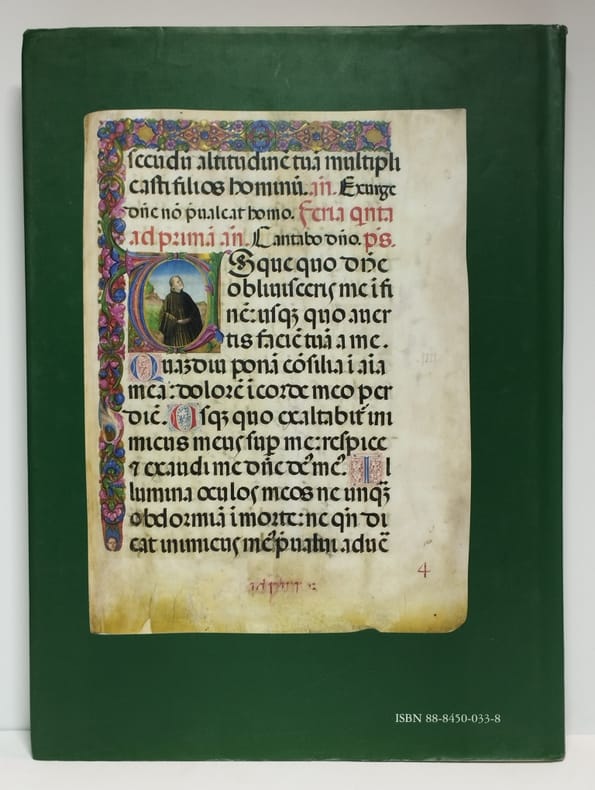 secūdū altitudinē tuā multipli
casti filios hominū. añ. Exurge
dñe nō p̄ualeat homo. Feria qnta
ad primā añ. Cantabo dño. ps.
Usque quo dñe
obliuisceris me ī fi
nē: usqȝ quo auer
tis faciē tuā a me.
Quadiu ponā cōsilia ī aīa
mea: dolorē ī corde meo per
diē. Usqȝ quo exaltabit̄ ini
micus meus sup me: respice
⁊ exaudi me dñe de' me'. Il
lumina oculos meos ne unqȝ
obdormiā ī morte: ne qñ di
cat inimicus me' p̄ualui aduē
4
ISBN 88-8450-033-8